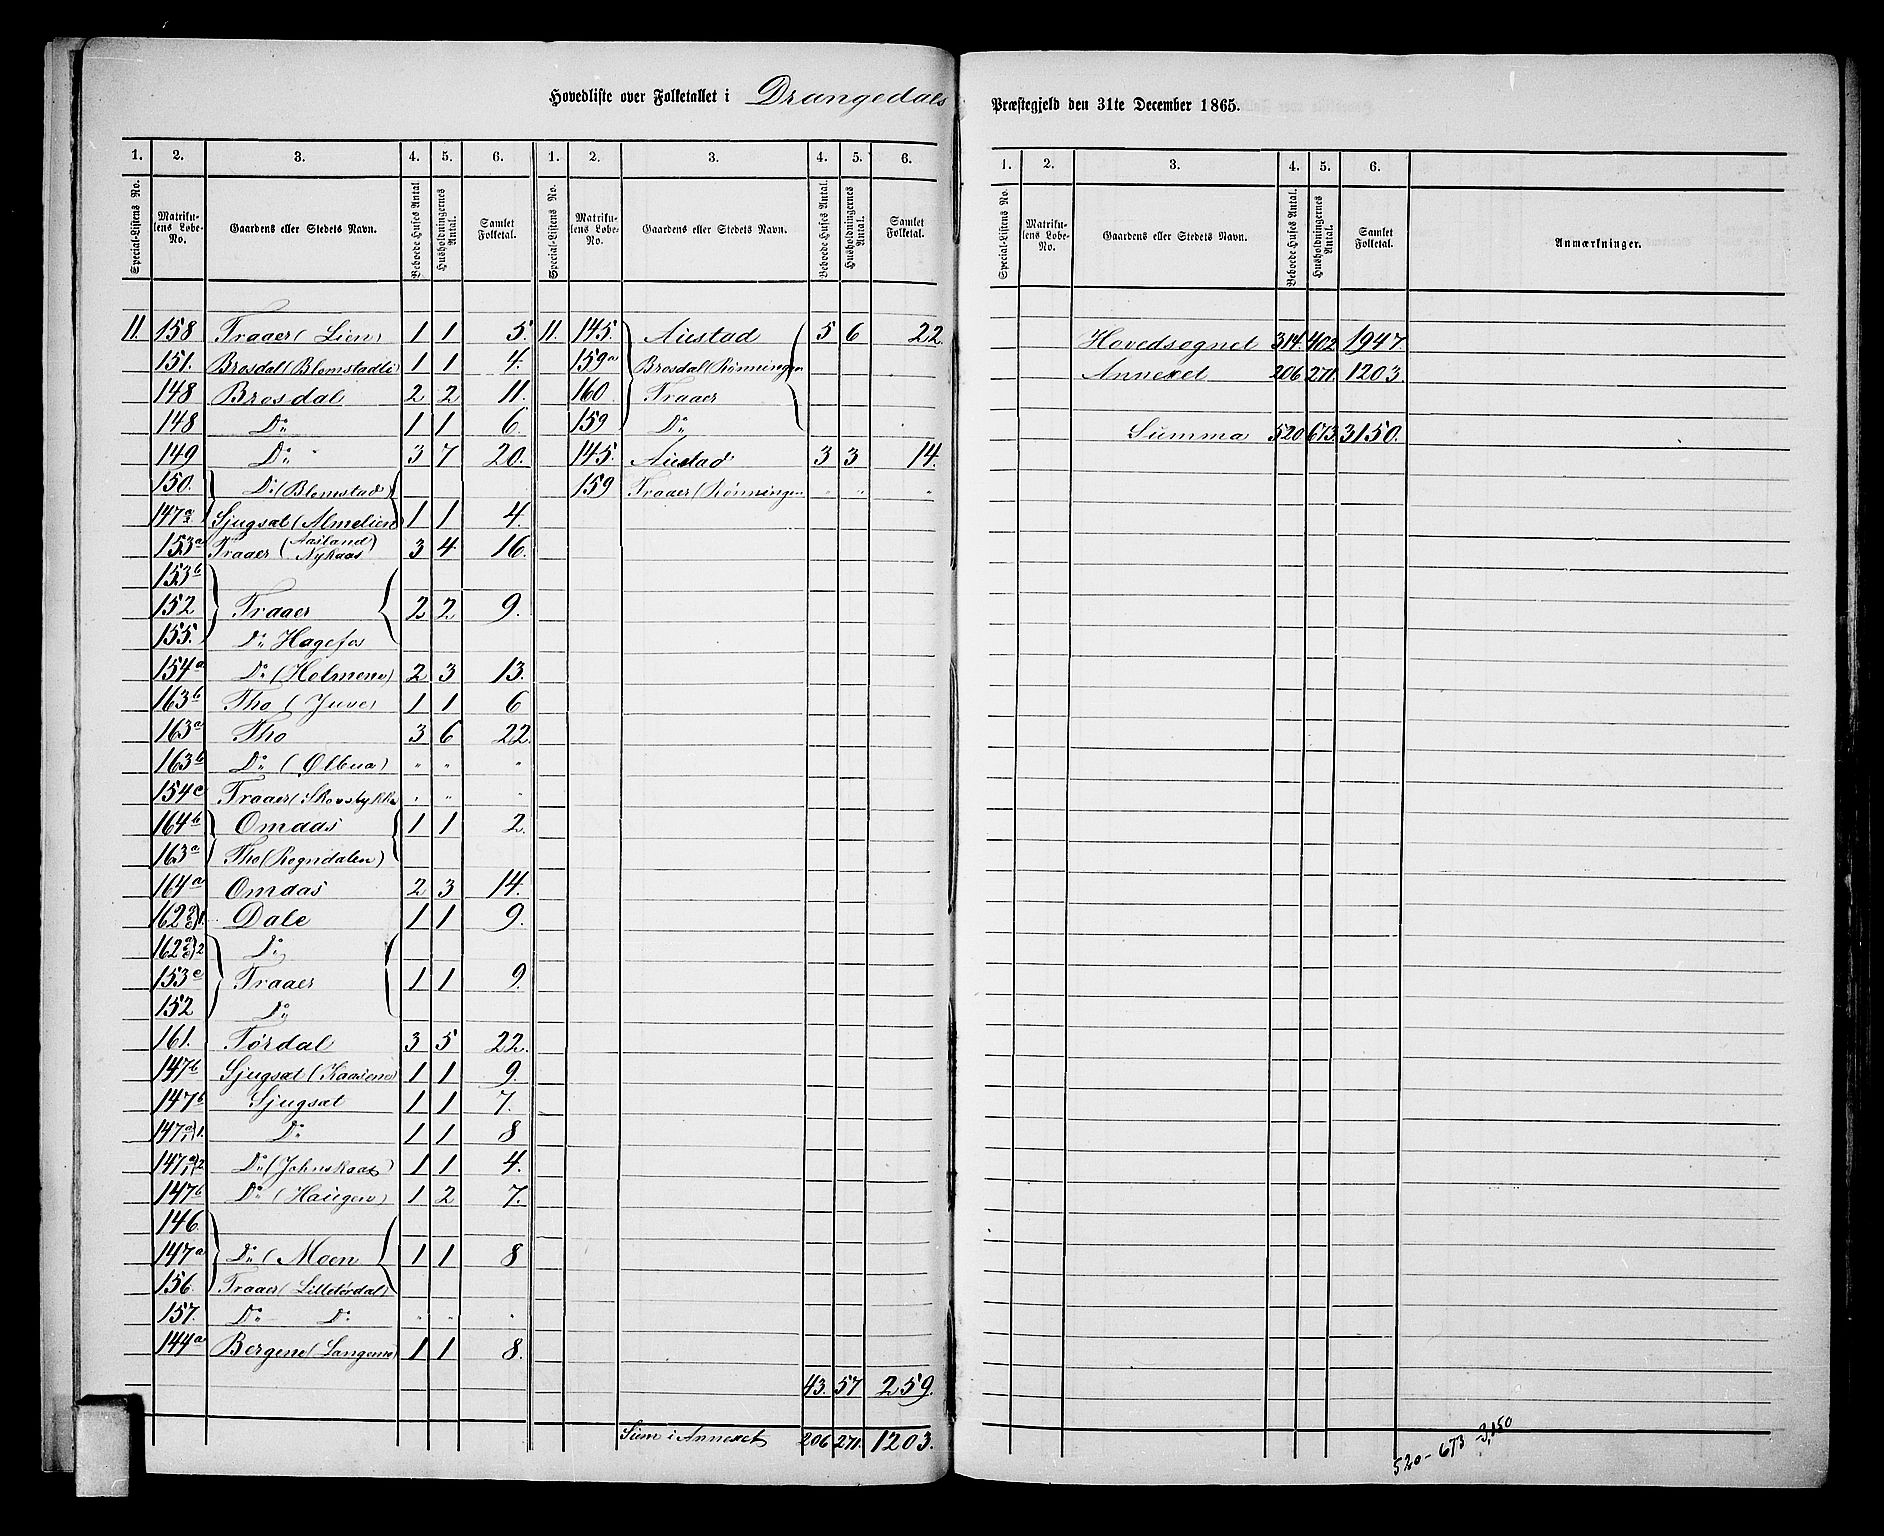 Hovedliste over Folketallet i Drangedals Præstegjeld den 31te December 1865.
1. 2. 3. 4. 5. 6. 1. 2. 3. 4. 5. 6.
Special-Listens No. Matrikulens Løbe-No. Gaardens eller Stedets Navn. Beboede Huses Antal. Husholdningernes Antal. Samlet Folketal. Special-Listens No. Matrikulens Løbe-No. Gaardens eller Stedets Navn. Beboede Huses Antal. Husholdningernes Antal. Samlet Folketal.
11. 158 Traaer (Lien) 1 1 5. 11. 145. Austad 5 6 22.
151. Brosdal (Blomstadli) 1 1 4. 159a Brosdal (Rønningen
148 Brosdal 2 2 11. 160 Traaer
148 Do 1 1 6. 159 Do
149 Do 3 7 20. 145. Austad 3 3 14.
150. Do (Blomstad) 159 Traaer (Rønningen " " "
147a Sjugsat (Almelien) 1 1 4.
153a Traaer (Aasland Nykaas) 3 4 16.
153b
152 Traaer 2 2 9.
155. Do Hagefos
154a Do (Holmen) 2 3 13.
163b Tho (Juve) 1 1 6
163a Tho 3 6 22.
163b Do (Ølbua) " " "
154c Traaer (Skovstykke " " "
164b Omdas 1 1 2.
163a Tho (Rogndalen)
164a Omdas 2 3 14.
162 a c) 1. Dale 1 1 9.
162 a c) 2 Do
153c Traaer 1 1 9.
152 Do
161. Tørdal 3 5 22.
147b Sjugsat (Kaasene) 1 1 9.
147b Sjugsat 1 1 7.
147a) 1. Do 1 1 8
147a) 2 Do (Johnskaas) 1 1 4.
147b Do (Haugen) 1 2 7.
146.
147a Do (Moen 1 1 8
156. Traaer (Lilletørdal)
157. Do Do " " "
144a Bergene (Langemo) 1 1 8.
43. 57 259.
Sum i Annexet 206 271. 1203.
1. 2. 3. 4. 5. 6.
Special-Listens No. Matrikulens Løbe-No. Gaardens eller Stedets Navn. Beboede Huses Antal. Husholdningernes Antal. Samlet Folketal. Anmærkninger.
Hovedsognet 314. 402 1947.
Annexet 206 271. 1203.
Summa 520. 673. 3150.
520 - 673 - 3,150